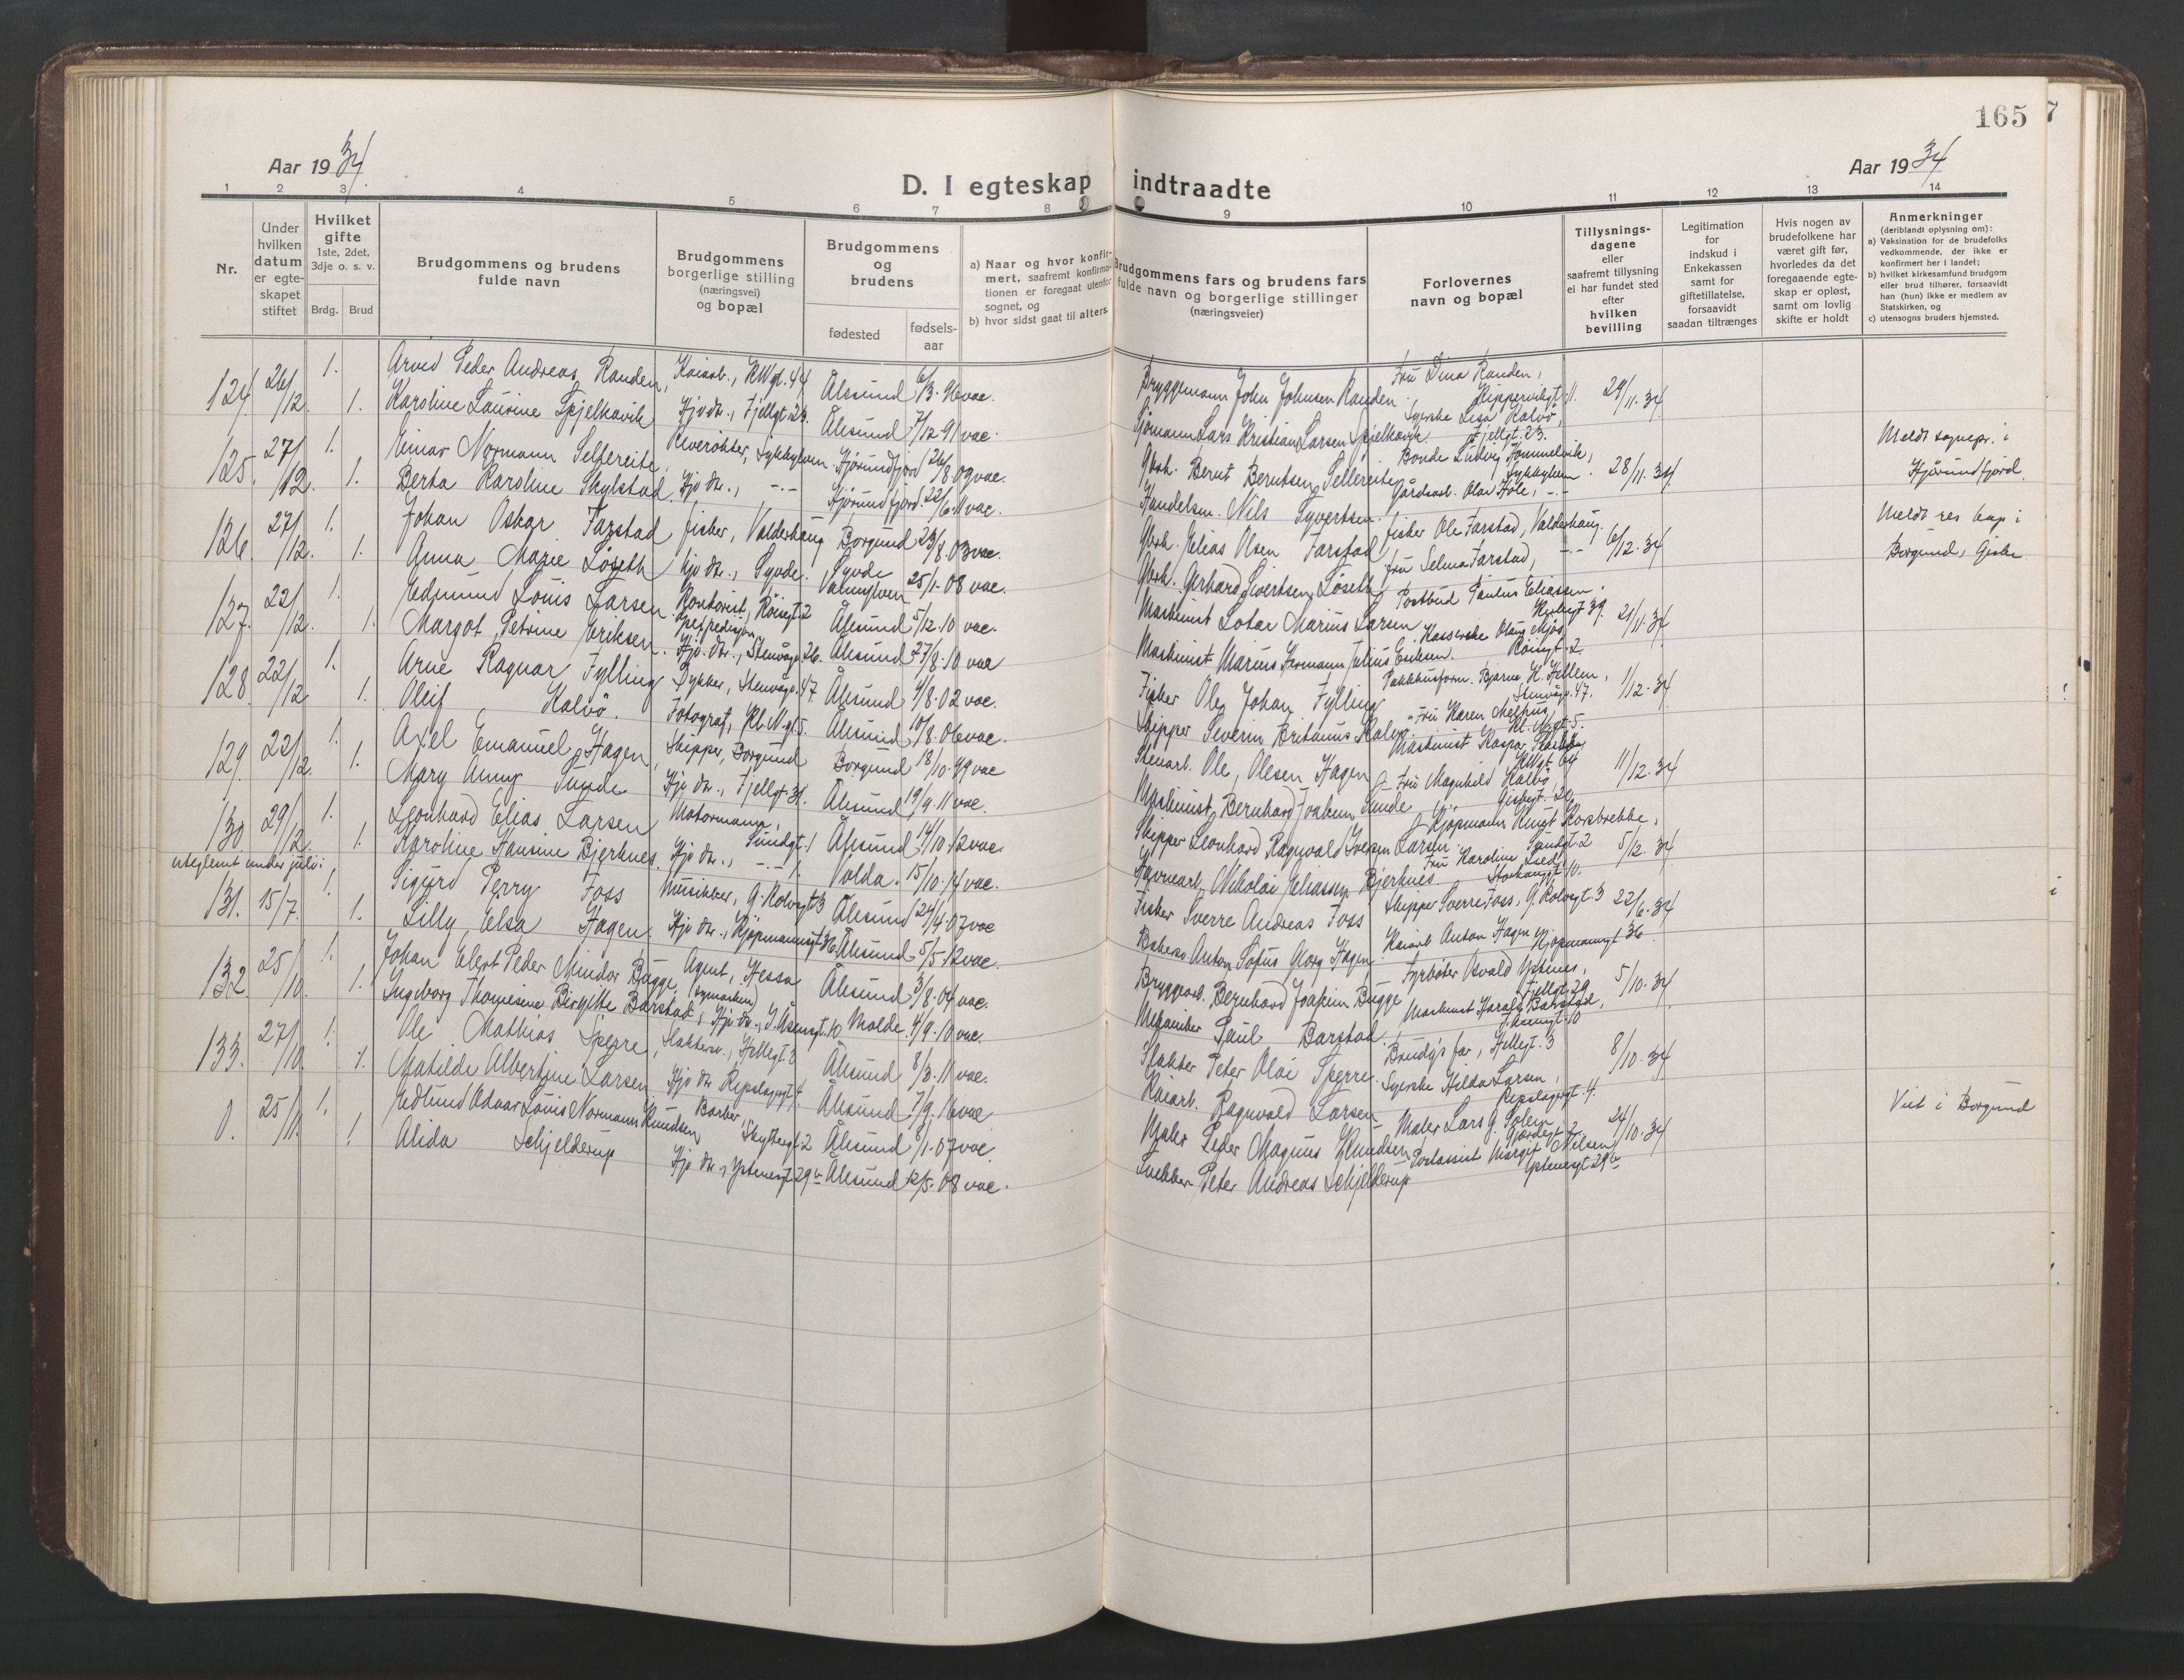 165
Aar 1934
D. I egteskap indtraadte
Aar 1934
1 2 3 4 5 6 7 8 9 10 11 12 13 14
Nr.
Under hvilken datum er egteskapet stiftet
Hvilket gifte 1ste, 2det, 3dje o. s. v.
Brdg. Brud
Brudgommens og brudens fulde navn
Brudgommens borgerlige stilling (næringsvei) og bopæl
Brudgommens og brudens
fødested
fødsels-aar
a) Naar og hvor konfirmert, saafremt konfirmationen er foregaat utenfor sognet, og
b) hvor sidst gaat til alters.
Brudgommens fars og brudens fars fulde navn og borgerlige stillinger (næringsveier)
Forlovernes navn og bopæl
Tillysningsdagene eller saafremt tillysning ei har fundet sted efter hvilken bevilling
Legitimation for indskud i Enkekassen samt for giftetillatelse, forsaavidt saadan tiltrænges
Hvis nogen av brudefolkene har været gift før, hvorledes da det foregaaende egteskap er opløst, samt om lovlig skifte er holdt
Anmerkninger
(deriblandt oplysning om):
a) Vaksination for de brudefolks vedkommende, der ikke er konfirmert her i landet;
b) hvilket kirkesamfund brudgom eller brud tilhører, forsaavidt han (hun) ikke er medlem av Statskirken, og
c) utensogns bruders hjemsted.
124. 26/12. 1. Arvid Peder Andreas Randen, Kaiarb., KWgt. 44 Ålesund 6/3. 96 vac. Bryggemann John Johnsen Randen. Fru Dina Randen, Skippervikgt. 11. 29/11. 34
1. Karoline Laurine Spjelkavik Hjv. dtr., Fjellgt. 23. Ålesund 7/12 91 vac. Sjømann Lars Kristian Larsen Spjelkavik. Syerske Lisa Kalvö, Fjellgt. 23.
125. 27/12. 1. Einar Normann Sellereite, Sykkylven. Hjørundfjord 26/8. 09 vac. Gbrk. Bernt Berntsen Sellereite Bonde Ludvig Hammelvik, Sykkylven. 28/11. 34 Meldt sognepr. i
1. Berta Karoline Skylstad. Hjv dtr., -"- Hjørundfjord. 22/6. 11 vac. Handelsm. Nils Syvertsen. Gårdarb. Olav Hole, -"- Hjørundfjord.
126. 27/12. 1. Johan Oskar Farstad fisker, Valderhaug Borgund 23/8. 03 vac. Gbrk. Elias Olsen Farstad fisker Ole Farstad, Valderhaug. 6/12. 34 Meldt res kap i
1. Anna Marie Løseth hjv dtr., Syvde. Syvde 25/1. 08 vac. Gbrk. Gerhard Sivertsen Løseth fru Selma Farstad, -"- Borgund, Giske
127. 22/12. 1. Edmund Louis Larsen. Kontorist, Röisgt. 2 Ålesund 5/12. 10 vac. Maskinist Lotar Marius Larsen Postbud Paulus Eliassen. 21/11. 34
1. Margot Petrine Eriksen. Hjv. dtr., Stenvågv. 26. Ålesund 27/8. 10 vac Maskinist Marius Hermann Julius Eriksen. Kasserske Röisgt. 2.
128 22/12 1. Arne Ragnar Fylling Dykker, Stenvågv. 47. Ålesund 4/8. 02 vac. Fisker Ole Johan Fylling Pakkhusform. Bjarne H. Hellem, Stenvågv. 47. 1/12. 34
1. Oleif Kalvö. Fotograf, Kl. N.gt. 5. Ålesund 10/8. 06 vac. Skipper Severin Britanus Kalvö Fru Karen Melhus, Kl. N.gt. 5.
129. 22/12. 1. Axel Emanuel Hagen, Skipper, Borgund Borgund 18/10. 99 vac Stenarb. Ole Olesen Hagen Maskinist Kaspar KWgt 64 11/12. 34
1. Mary Anny Sunde Hjv dtr., Fjellgt. 31. Ålesund 19/9. 11 vac. Maskinist Bernhard Joakim Sunde Fru Magnhild Kalvö
130. 29/12. 1. Leonhard Elias Larsen Motormann, Sundgt. 1 Ålesund 14/10. 12 vac. Skipper Leonhard Ragnvald Iversen Larsen. Kjøpmann Knut Korsbrekke, Sundgt. 2 5/12. 34
1. Karoline Hansine Bjerknes. Hjv dtr., -"- 1. Volda. 15/10. 14 vac. Havnearb. Nikolai Eliassen Bjerknes. Fru Karoline
uteglemt under juli:
131. 15/7. 1. Sigurd Perry Foss Musikker, G. Rolvsgt 3 Ålesund 24/4. 07 vac Fisker Sverre Andreas Foss Skipper Sverre Foss, G. Rolvsgt. 3 22/6. 34
1. Lilly Elsa Hagen. Hjv dtr., Kjöpmannsgt 36 Ålesund 5/5. 12 vac. Anton Sofus Georg Hagen. Kaiarb Anton Hagen Kjøpmannsgt 36.
132. 25/10. 1. Johan Elert Peder Mindor Bugge, Agent, Hessa Ålesund 3/8. 04 vac. Bryggearb. Bernhard Joakim Bugge Fyrbøter Osvald Ystenes, Fjellgt. 29 5/10. 34
1. Ingeborg Thomesine Birgitte Barstad, Hjv dtr., I. Åsensgt. 10 Molde. 4/9. 10 vac. Mekaniker Paul Barstad. Maskinist Harald Barstad,
133. 27/10. 1. Ole Mathias Sperre, Slaktersv., Hellegt. 3 Ålesund 8/3. 11 vac. Slakter Peter Olai Sperre. Brudg's far, Hellegt. 3 8/10. 34
1. Matilde Albertine Larsen Hjv dtr Repslagergt 4. Ålesund 7/9. 16 vac. Kaiarb. Ragnvald Larsen Syerske Hilda Larsen, Repslagergt. 4.
0. 25/11. 1. Edlund Odvar Louis Normann Knudsen Barber Skytterгt. 2 Ålesund 8/1. 07 vac. Maler Peder Magnus Knudsen Maler Lars G. 24/10. 34 Viet i Borgund
1. Alida Schjelderup Hjv dtr., Ystenesgt 29b Ålesund 12/5. 08 vac. Snekker Peter Andreas Schjelderup Postassist Margit Nilsen Ystenesgt 29b